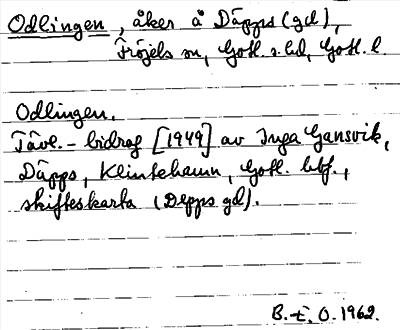 Odlingen, åker å Däpps (gd),
Fröjels sn, Gotl. s. hd, Gotl. l.
Odlingen.
Tävl.-bidrag [1949] av Inga Gansvik,
Däpps, Klintehamn, Gotl. hbf.,
skifteskarta (Depps gd).
B. E. O. 1962.